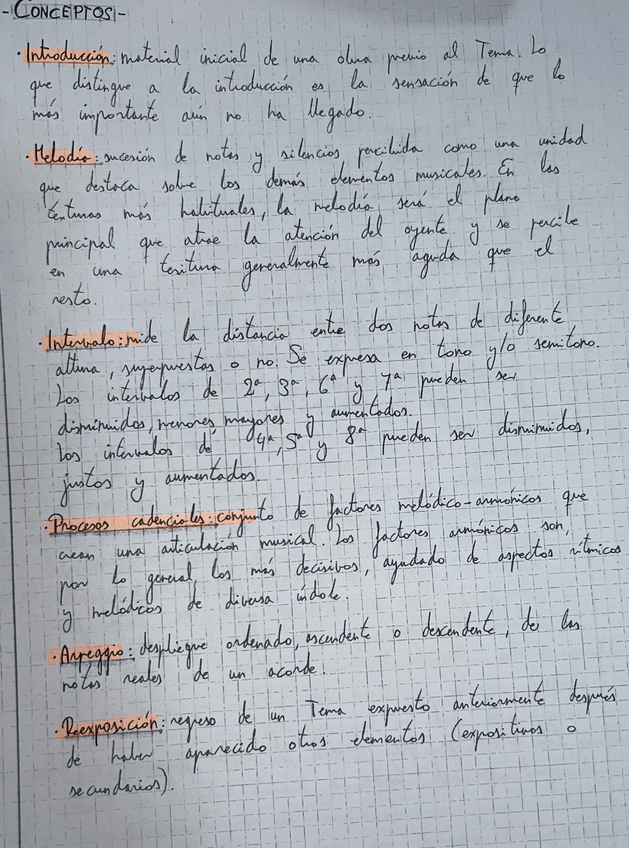 - CONCEPTOS -
· Introducción: material inicial de una obra previo al Tema. Lo
que distingue a la introducción es la sensación de que lo
más importante aún no ha llegado.
· Melodía: sucesión de notas y silencios percibida como una unidad
que destaca sobre los demás elementos musicales. En las
texturas más habituales, la melodía será el plano
principal que atrae la atención del oyente y se percibe
en una tesitura generalmente más aguda que el
resto.
· Intervalo: mide la distancia entre dos notas de diferente
altura, superpuestas o no. Se expresa en tono y/o semitono.
Los intervalos de 2ª, 3ª, 6ª y 7ª pueden ser
disminuidos, menores, mayores y aumentados.
Los intervalos de 4ª, 5ª y 8ª pueden ser disminuidos,
justos y aumentados.
· Procesos cadenciales: conjunto de factores melódico-armónicos que
crean una articulación musical. Los factores armónicos son,
por lo general, los más decisivos, ayudado de aspectos rítmicos
y melódicos de diversa índole.
· Arpeggio: despliegue ordenado, ascendente o descendente, de las
notas reales de un acorde.
· Reexposición: regreso de un Tema expuesto anteriormente después
de haber aparecido otros elementos (expositivos o
secundarios).